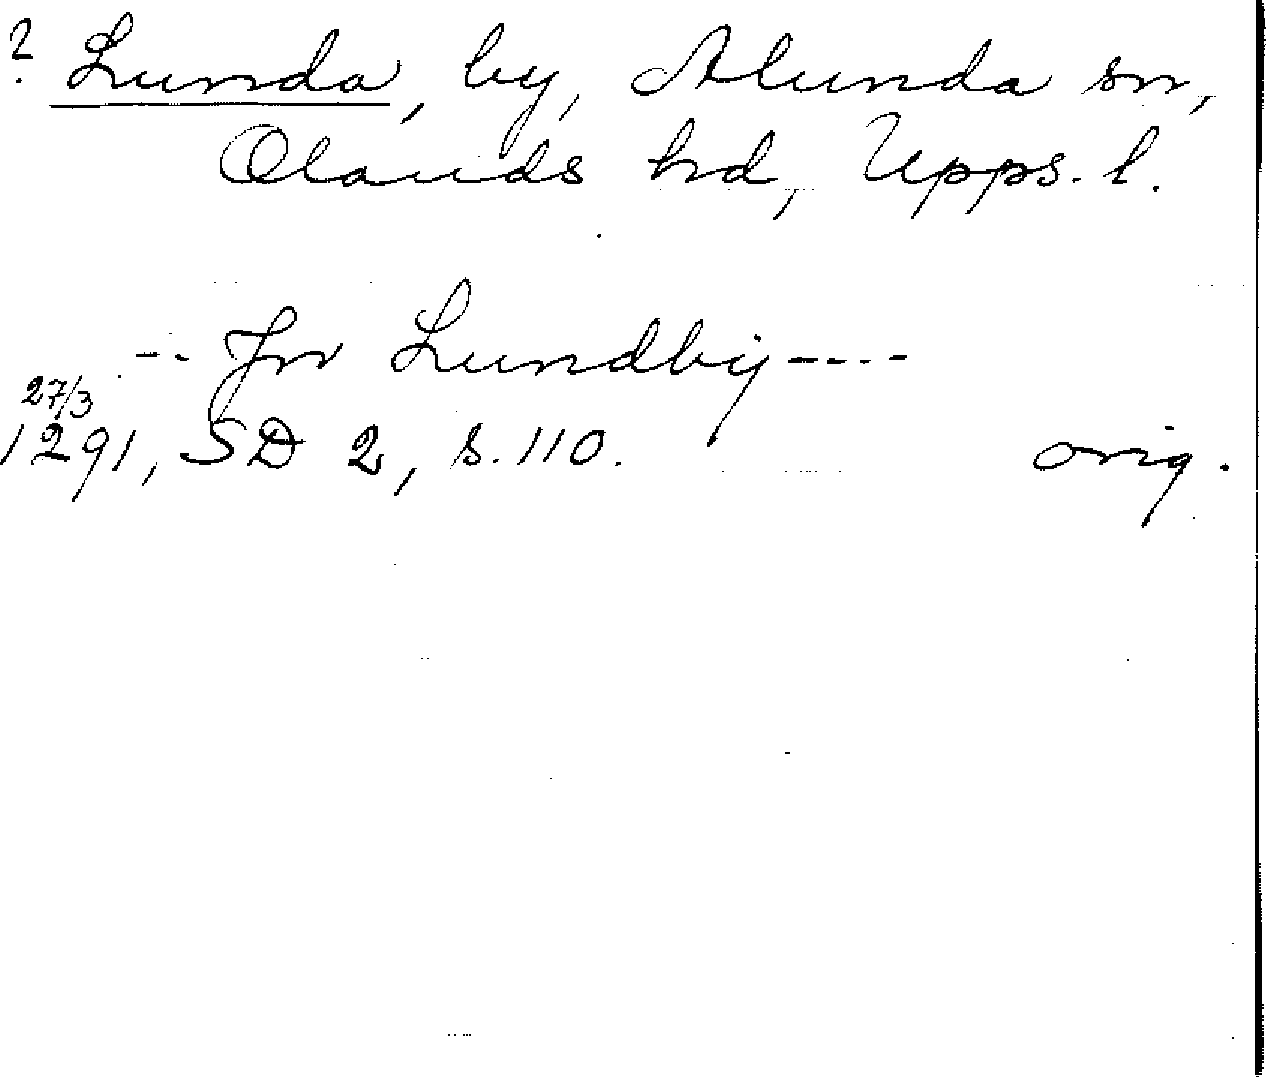 ? Lunda, by, Alunda sn,
Olands hd, Upps. l.
-- Jn Lundby ----
27/3
1291, SD 2, s. 110. orig.